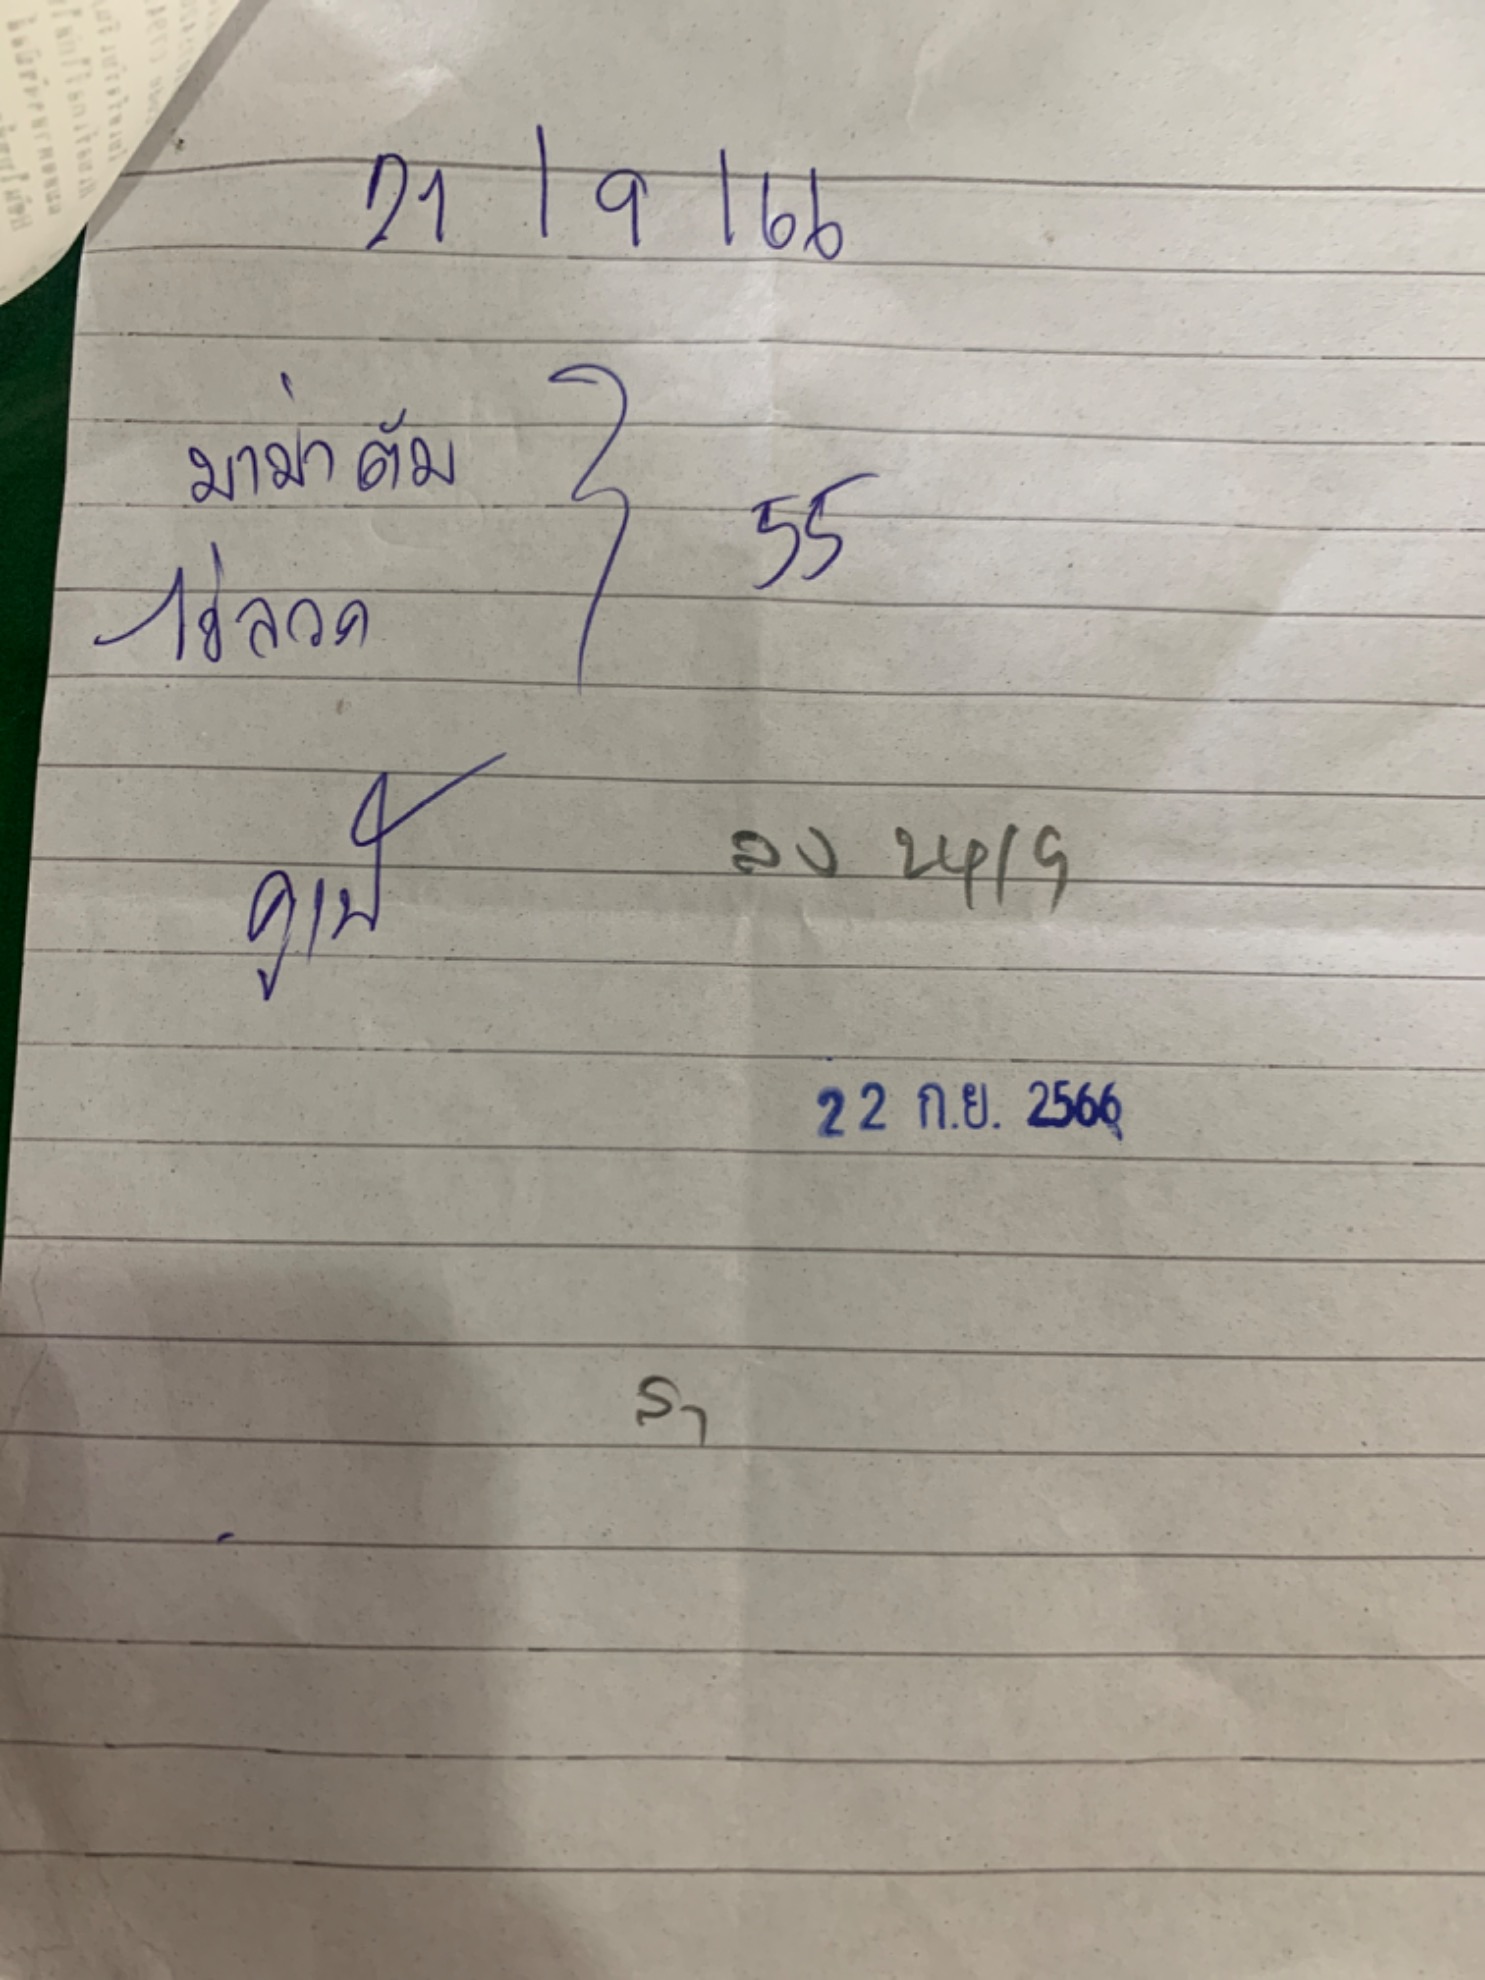 21/9/66
มาม่าต้ม
ไข่ลวก
55
ลง 24/9
22 ก.ย. 2566